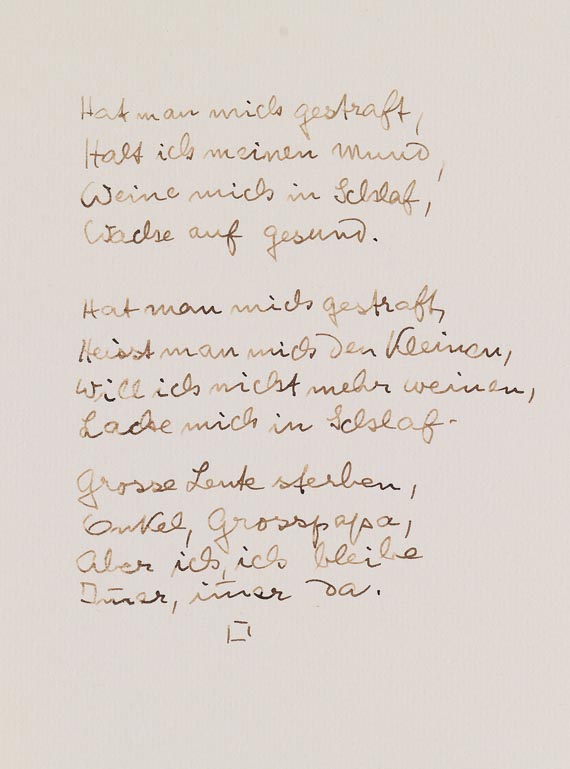 Hat man mich gestraft,
Halt ich meinen Mund,
Weine mich in Schlaf,
Wache auf gesund.
Hat man mich gestraft,
Heisst man mich den Kleinen,
Will ich nicht mehr weinen,
Lache mich in Schlaf.
Grosse Leute sterben,
Onkel, Grosspapa,
Aber ich, ich bleibe
Im̅er, im̅er da.